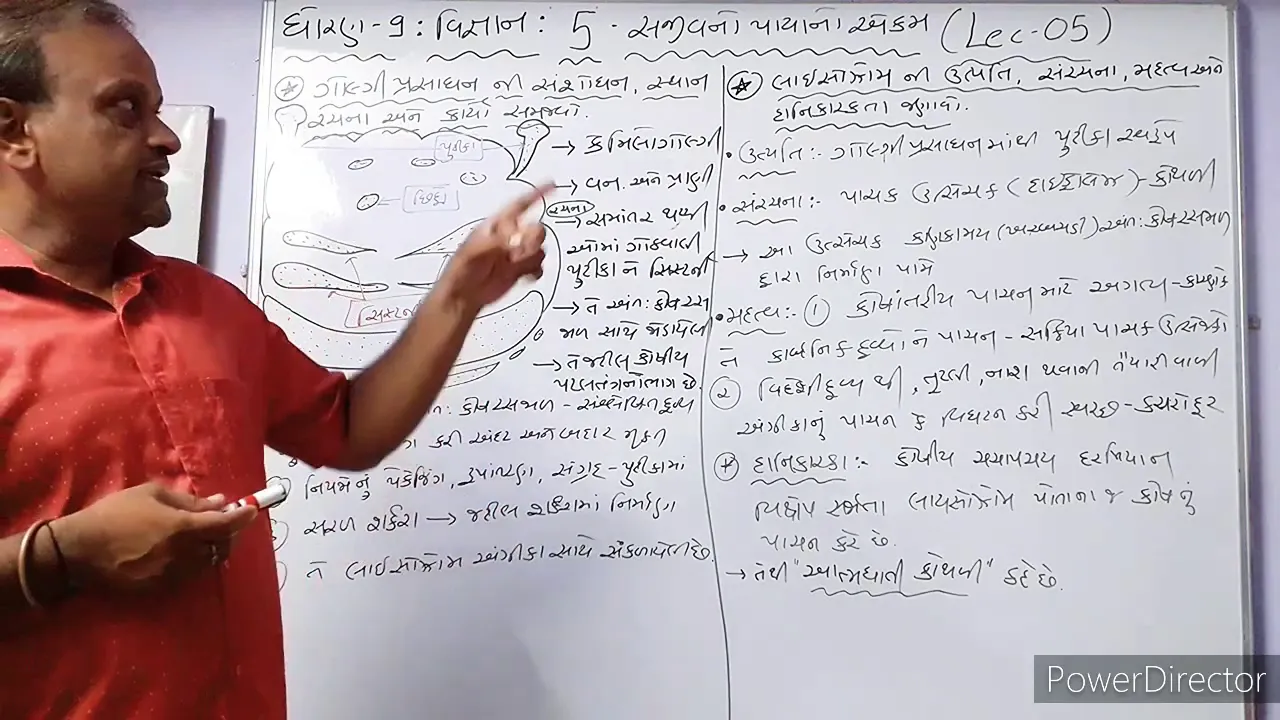 ધોરણ-9 : વિજ્ઞાન : 5 - સજીવનો પાયાનો એકમ (Lec-05)
ગોલ્ગી પ્રસાધન ની સંશોધન, સ્થાન
રચના અને કાર્યો સમજાવો.
પુટીકા
છિદ્રો
સિસ્ટર્ની
→ કેમિલો ગોલ્ગી
→ વન. અને પ્રાણી
રચના
→ સમાંતર થપ્પી
ઓમાં ગોઠવાયેલી
પુટીકા ને સિસ્ટર્ની
→ તે અંત: કોષરસ
જાળ સાથે જોડાયેલ
→ તે જટીલ કોષીય
પટલતંત્રનો ભાગ છે.
કોષરસજાળ - સંશ્લેષિત દ્રવ્ય
કરી અંદર અને બહાર મુક્ત
નિપજોનું પેકેજિંગ, રૂપાંતરણ, સંગ્રહ - પુટીકામાં
સરળ શર્કરા → જટીલ શર્કરામાં નિર્માણ
તે લાઇસોઝોમ અંગીકા સાથે સંકળાયેલી છે.
લાઇસોઝોમ ની ઉત્પતિ, સંરચના, મહત્વ અને
હાનિકારકતા જણાવો.
• ઉત્પતિ :- ગોલ્ગી પ્રસાધનમાંથી પુટીકા સ્વરૂપે
• સંરચના :- પાચક ઉત્સેચક (હાઇડ્રોલેઝ) - કોથળી
→ આ ઉત્સેચક કણિકામય (ખરબચડી) અંત: કોષરસજાળ
દ્વારા નિર્માણ પામે
• મહત્વ :- 1 કોષાંતરીય પાચન માટે અગત્ય - કારણકે
તે કાર્બનિક દ્રવ્યો ને પાચન - સક્રિય પાચક ઉત્સેચકો
2 વિદેશી દ્રવ્ય થી, તૂટેલી, નાશ થવાની તૈયારીવાળી
અંગીકાનું પાચન કે વિઘટન કરી સ્વચ્છ - કચરો દૂર
હાનિકારકા :- કોષીય ચયાપચય દરમિયાન
વિક્ષેપ સર્જાતા લાયસોઝોમ પોતાના જ કોષનું
પાચન કરે છે.
→ તેથી "આત્મઘાતી કોથળી" કહે છે.
PowerDirector